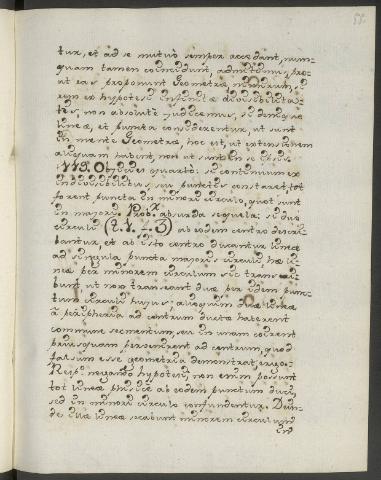 tur, et ad se mutuò semper accedant, num-
quam tamen coincidunt, admittimus, pro-
ut eas proponunt Geometræ
rem ex hypotesi infinitæ divisibilita-
tis, non absolutè judicemus, si denique
lineæ, et puncta considerentur, ut sunt
in mente Geometræ, hoc est, ut extensionem
aliquam habent, non ut sunt in se ipsis.
119. Objicies quartò: si continuum ex
indivisibilibus, seu punctis constaret, tot
forent puncta in minori circulo, quot sunt
in majori. Prob. absurda sequela: si duo
circuli (2. f. 3) ab eodem centro descri-
bantur, et ab isto centro ducantur lineæ
ad singula puncta majoris circuli hæ li-
neæ per minorem circulum sic transeant
bunt ut non transeant duæ per idem punc-
tum circuli hujus; alioquin duæ lineæ
à peripheria ad centrum ductæ haberent
commune segmentum, seu in unam coirent
priusquam pervenirent ad centrum, quod
falsum esse geometria demonstrat, ergo.
Resp. negando hypotesi, non enim possunt
tot lineæ phisicè ab eodem punctum duci,
sed in minori circulo confundentur. Dein-
de duæ lineæ secabunt minorem circulum
in